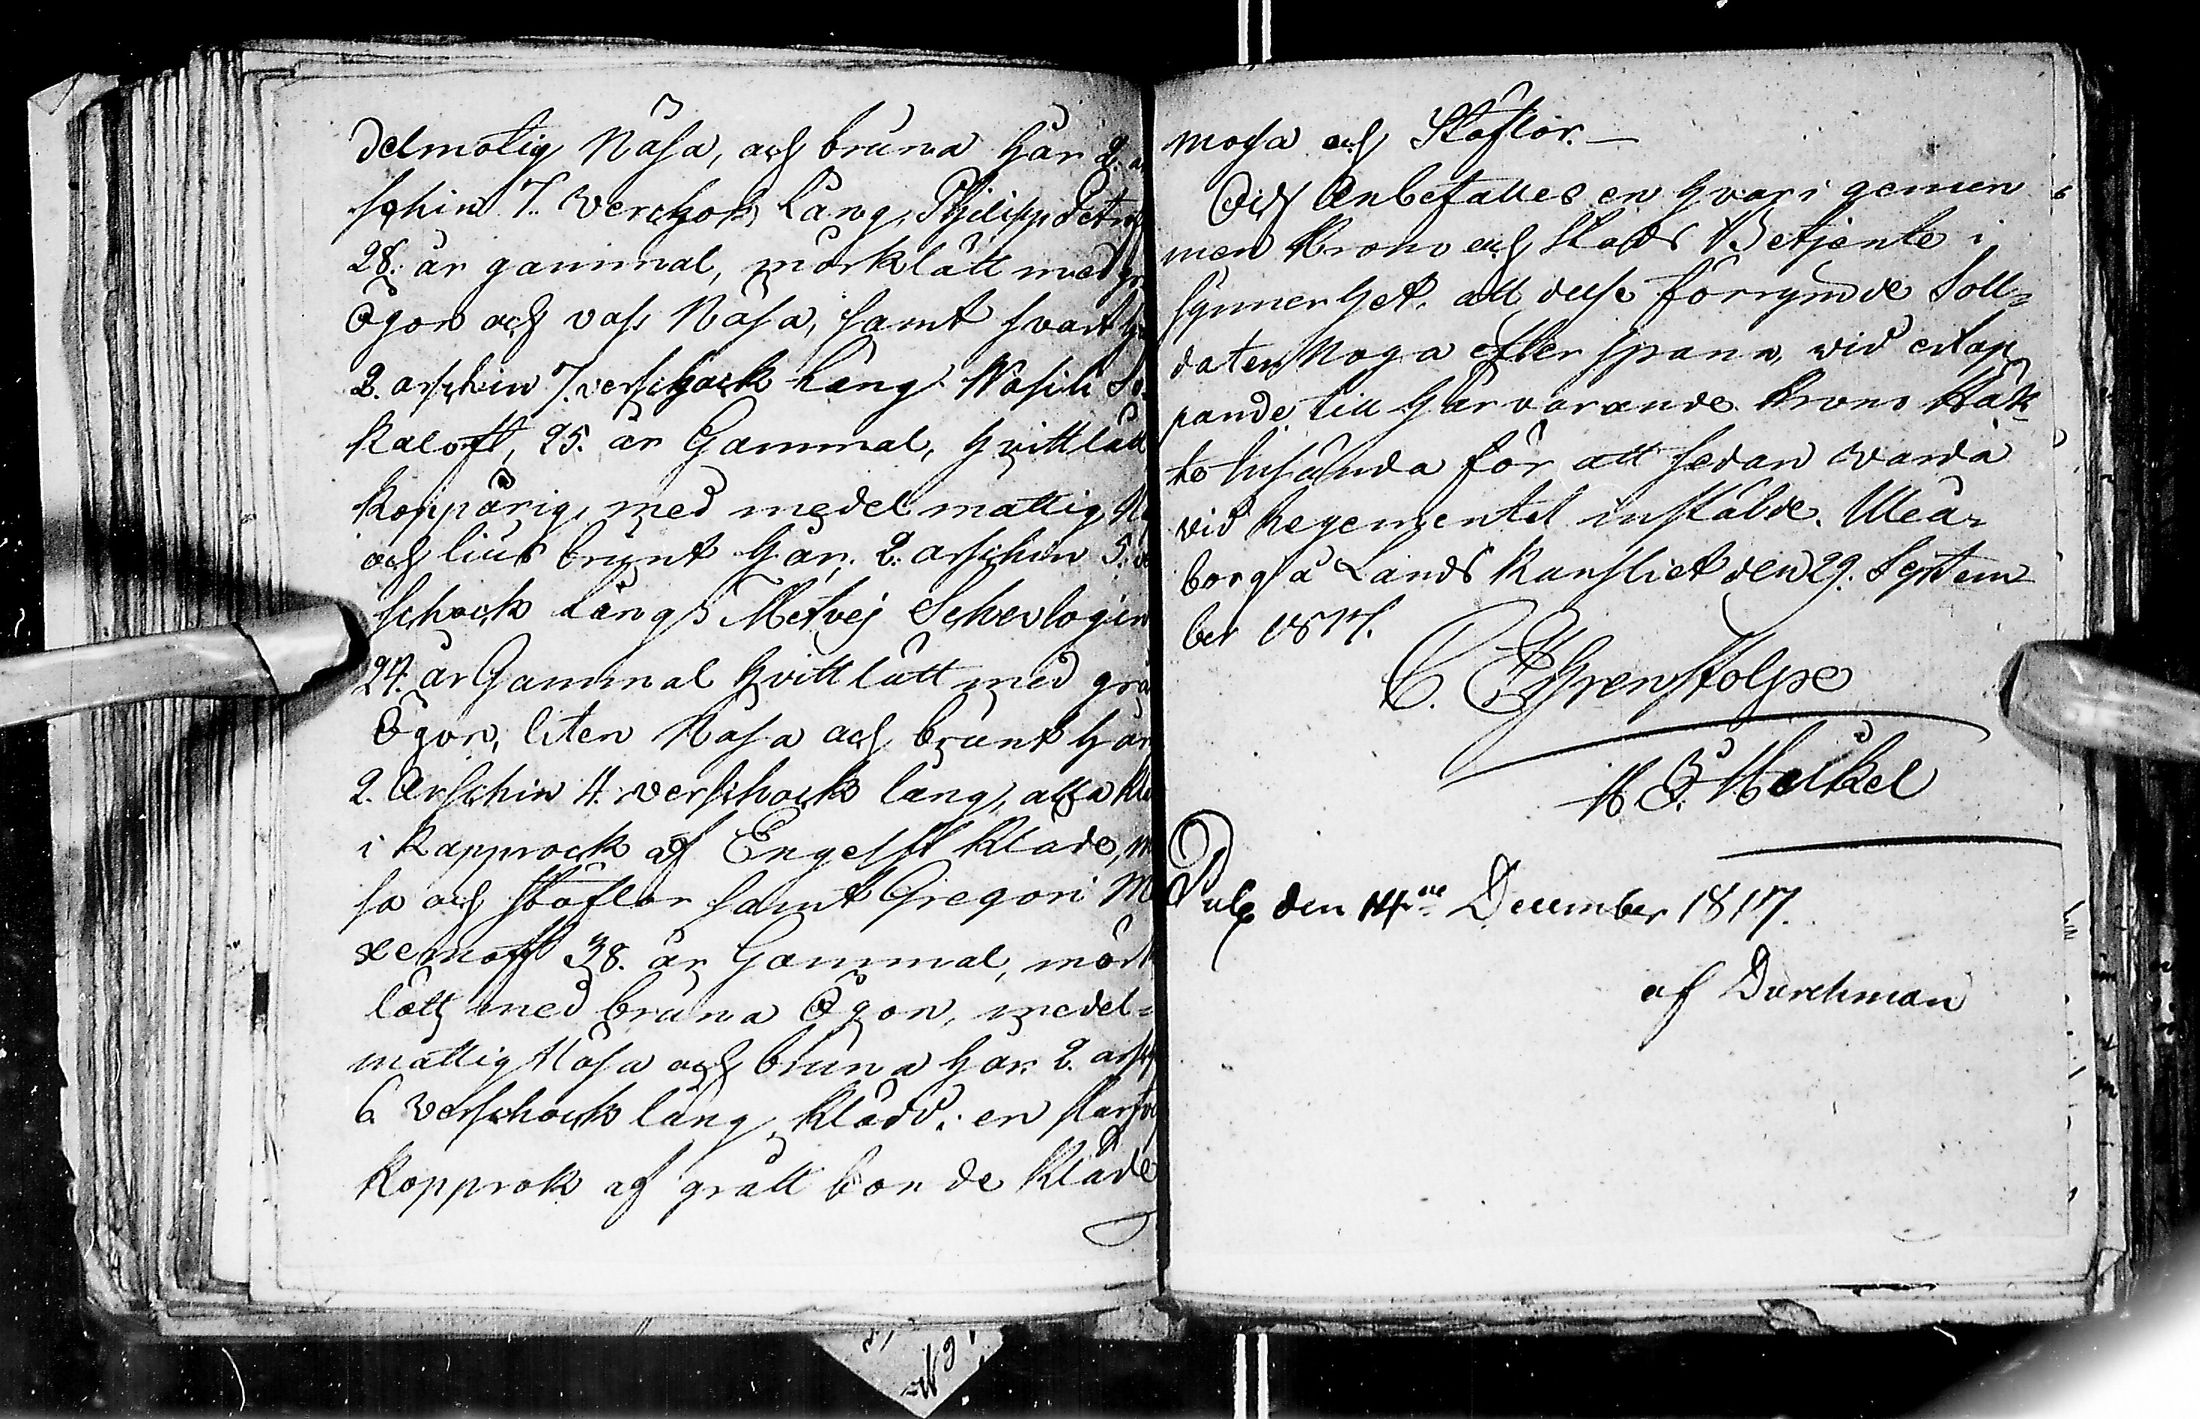 delmotig Näsa, och bruna hår 2. a
schin 7. verchok lång, Philipp Petro
28. år gammal, mörklätt med gr
Ögon och vass Näsa, samt svart h
2. arschin 7. verschock lång Wasili So
kaloff, 25. år Gammal, hvitt lätt
koppärig, med medelmattig Nä
och lius brunt hår. 2. arschin 5. ve
schock lång, Metvej Schevlogin
24. år Gammal hvitt lätt med grå
Ögon, liten Näsa och brunt hår
2. Arschin 4. verschock lång, alla klä
i Kapprock af Engelskt Kläde, m
sa och stöflor samt Gregori M
xemoff 38. år Gammal, mörk
lätt med bruna Ögon, medel=
mattig Näsa och bruna hår 2. arsch
6. verschock lång, klädd i en
Kopprok af grått bonde Kläde
mossa och Stöflor. —
Och Anbefalles en hvar i gemen
men Krono och Stads Betjente i
synnerhet. att desse förrymde Soll=
daten Noga efterspana, vid ertap
pande till härvarande Krono Häk
te Insända för att sedan varda
vid Regementet instälde. Uleå=
borg å Lands Kansliet den 29. Septem
ber 1817.
C. Ehrenstolpe
H J. Heikel
Pub den 14de December 1817.
af Durchman